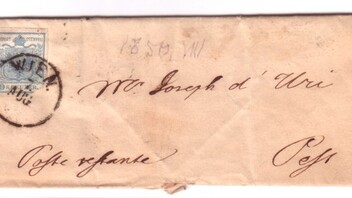 WIEN
AUG
Mr Joseph d' Uri
Poste restante Pest